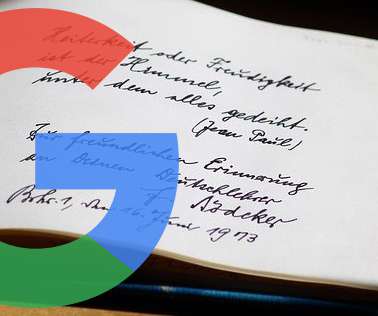 Heiterkeit oder Freudigkeit
ist der Himmel,
unter dem alles gedeiht.
(Jean Paul)
Zur freundlichen Erinnerung
an Deinen Deutschlehrer
Bohr. 1, den 16. Juni 1973